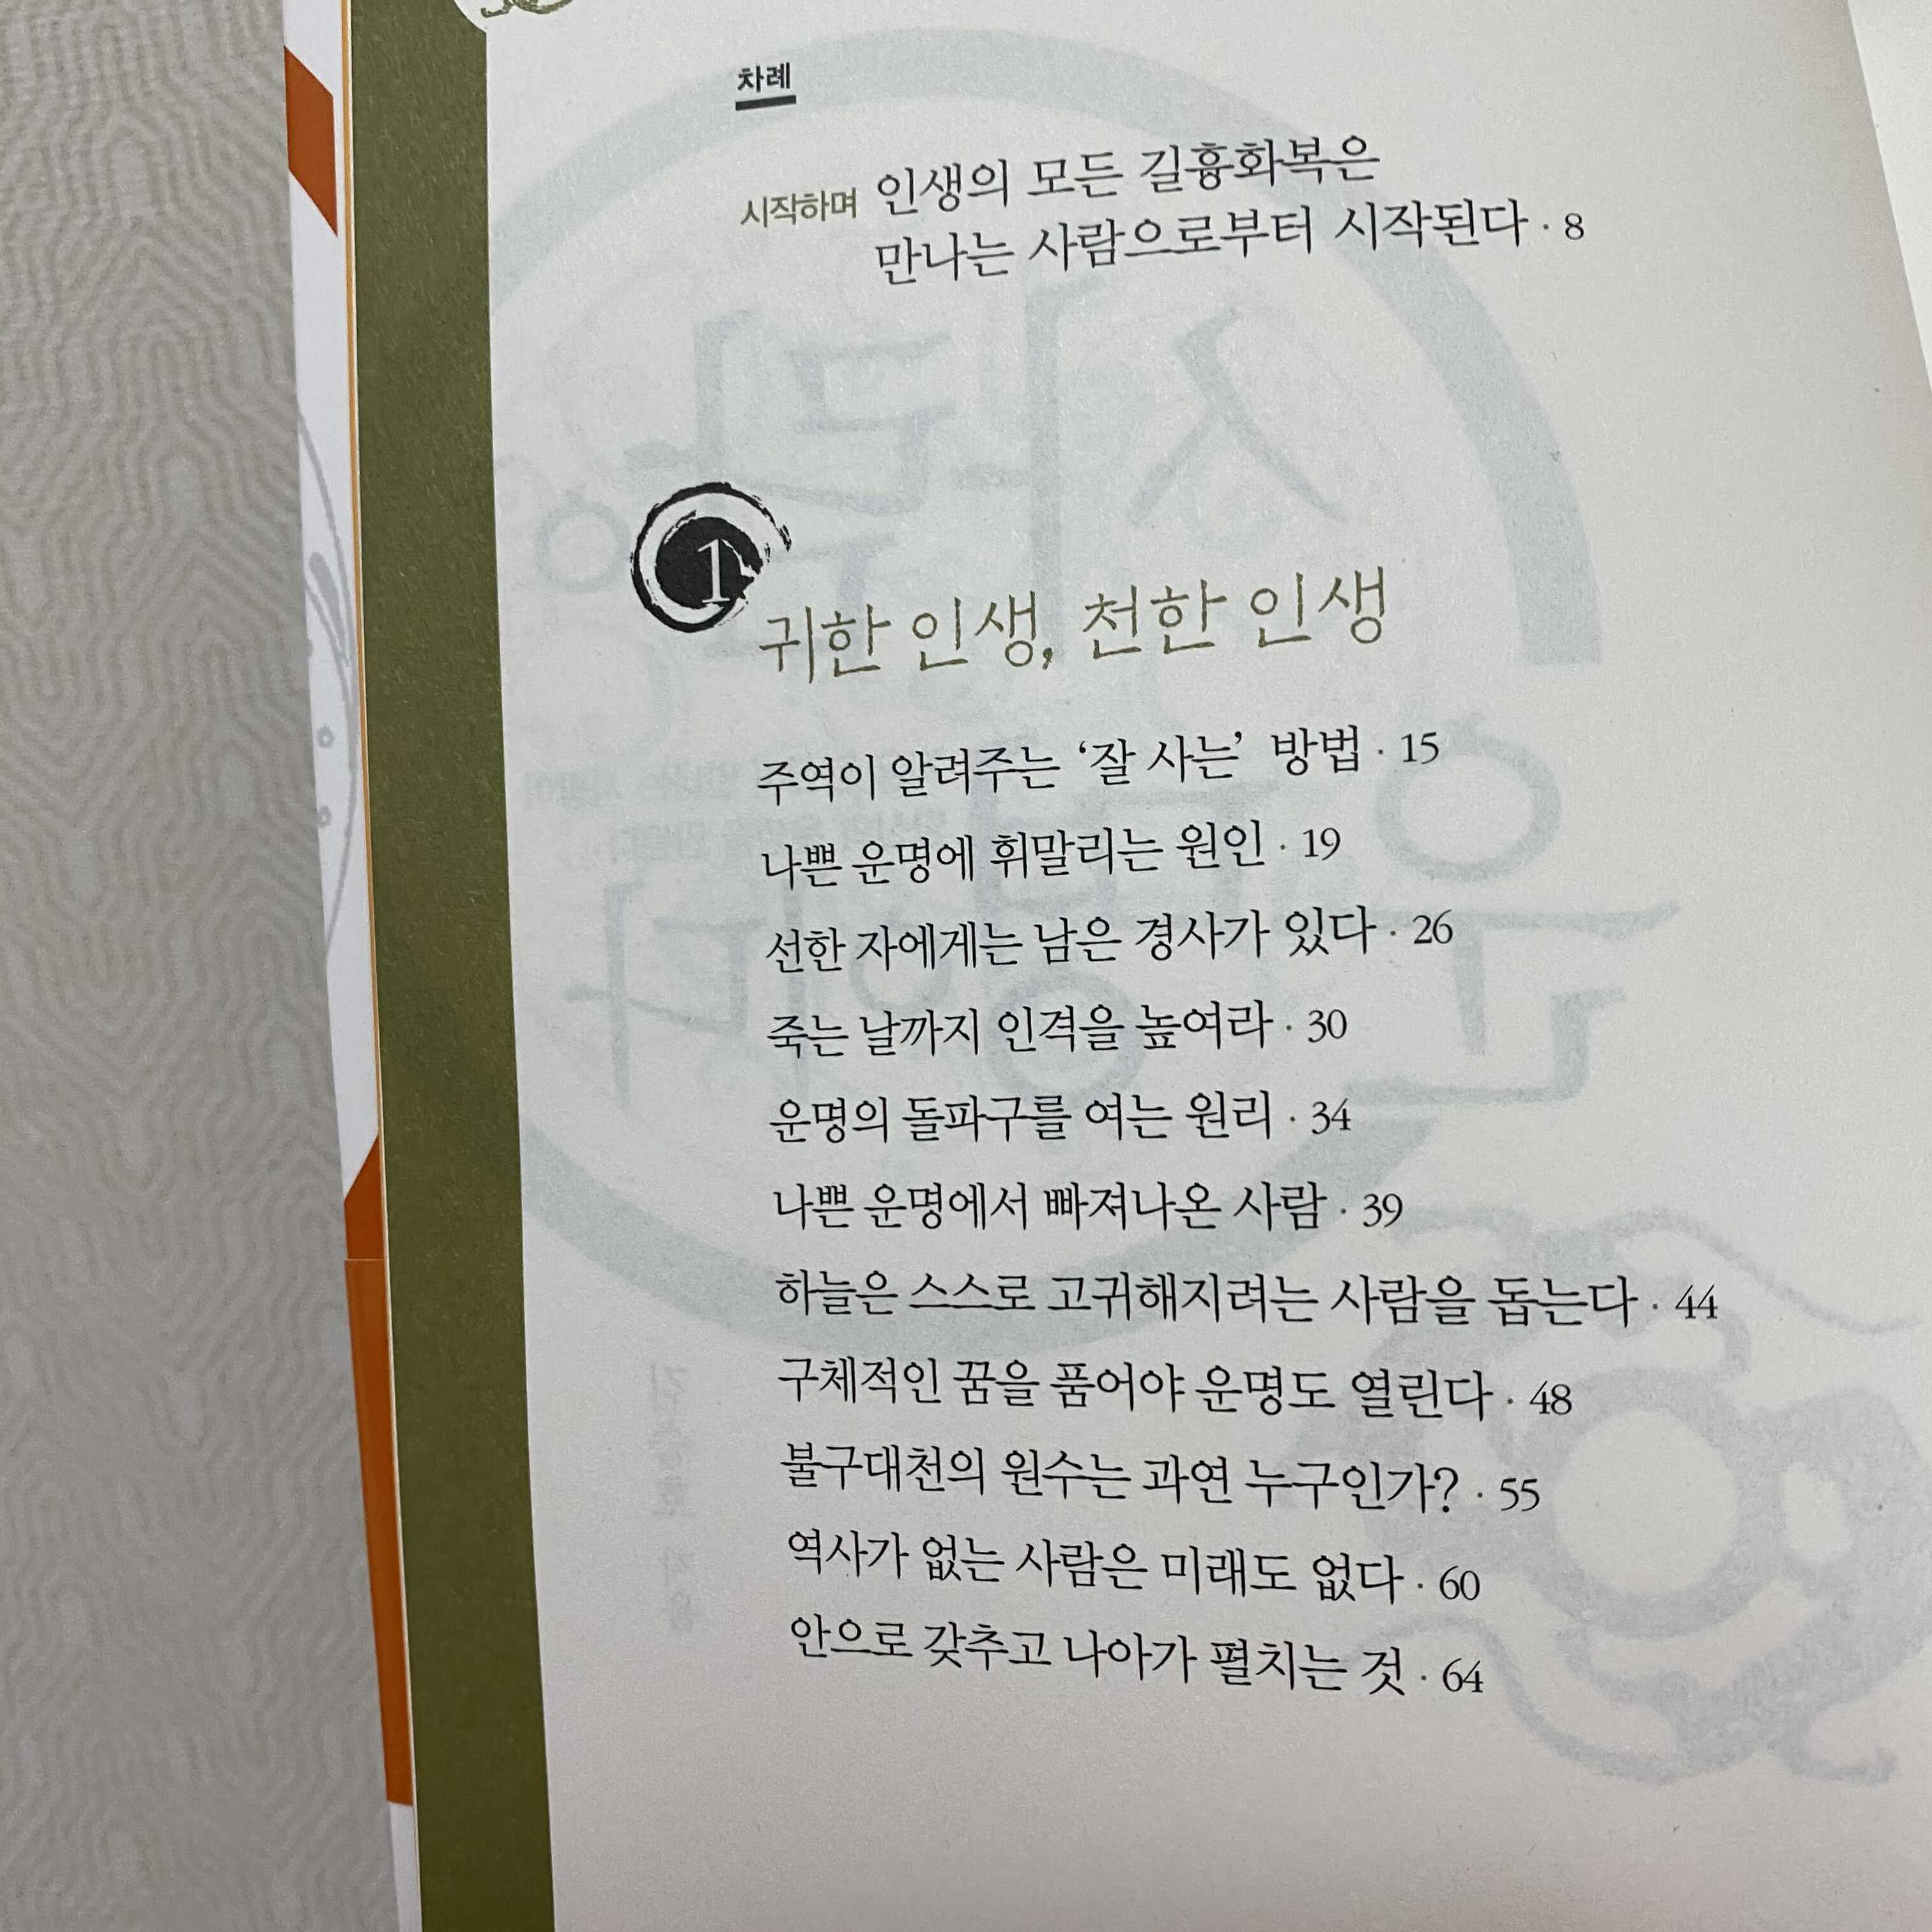 차례
시작하며 인생의 모든 길흉화복은
만나는 사람으로부터 시작된다 · 8
1
귀한 인생, 천한 인생
주역이 알려주는 ‘잘 사는’ 방법 · 15
나쁜 운명에 휘말리는 원인 · 19
선한 자에게는 남은 경사가 있다 · 26
죽는 날까지 인격을 높여라 · 30
운명의 돌파구를 여는 원리 · 34
나쁜 운명에서 빠져나온 사람 · 39
하늘은 스스로 고귀해지려는 사람을 돕는다 · 44
구체적인 꿈을 품어야 운명도 열린다 · 48
불구대천의 원수는 과연 누구인가? · 55
역사가 없는 사람은 미래도 없다 · 60
안으로 갖추고 나아가 펼치는 것 · 64